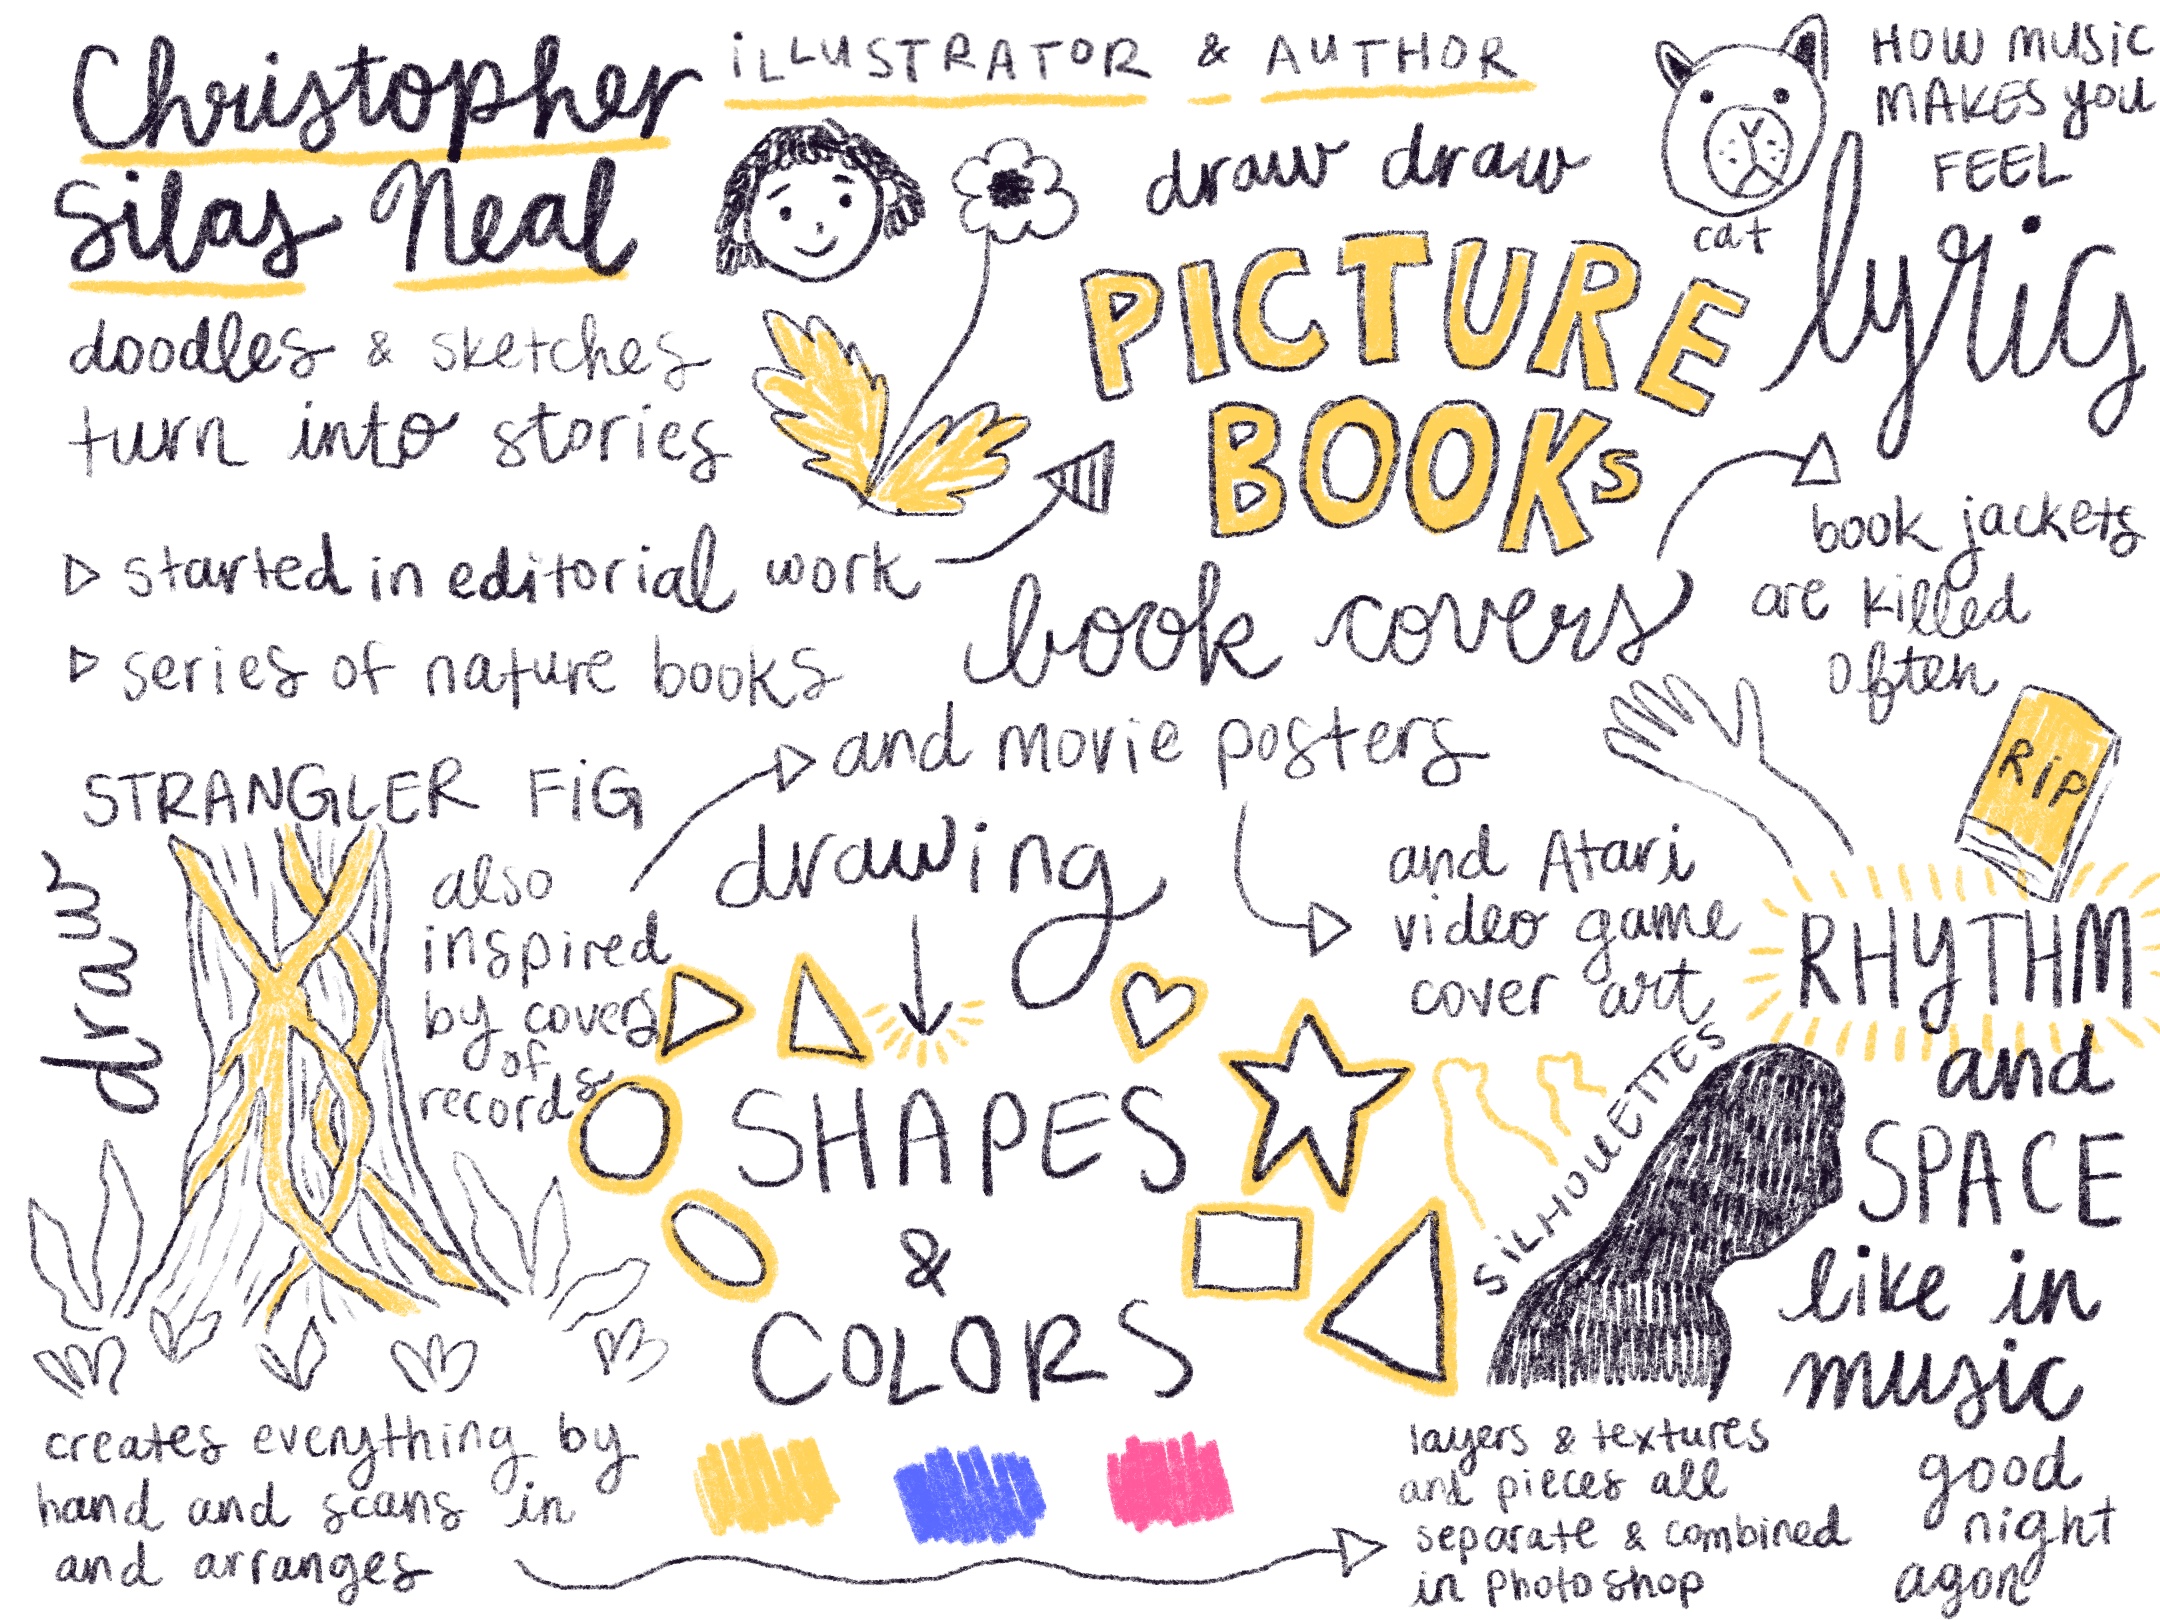 Christopher
Silas Neal
iLLUSTRATOR & AUTHOR
doodles & sketches
turn into stories
draw draw
PICTURE
BOOKs
cat
HOW MUSiC
MAKES yOU
FEEL
lyrics
started in editorial work
series of nature books
book covers
book jackets
are killed
often
RiP
and movie posters
STRANGLER FiG
draw
also
inspired
by covers
of
records
drawing
SHAPES
&
COLORS
and Atari
video game
cover art
SiLHOUETTES
RHyTHM
and
SPACE
like in
music
good
night
agon
creates everything by
hand and scans in
and arranges
layers & textures
and pieces all
separate & combined
in photoshop